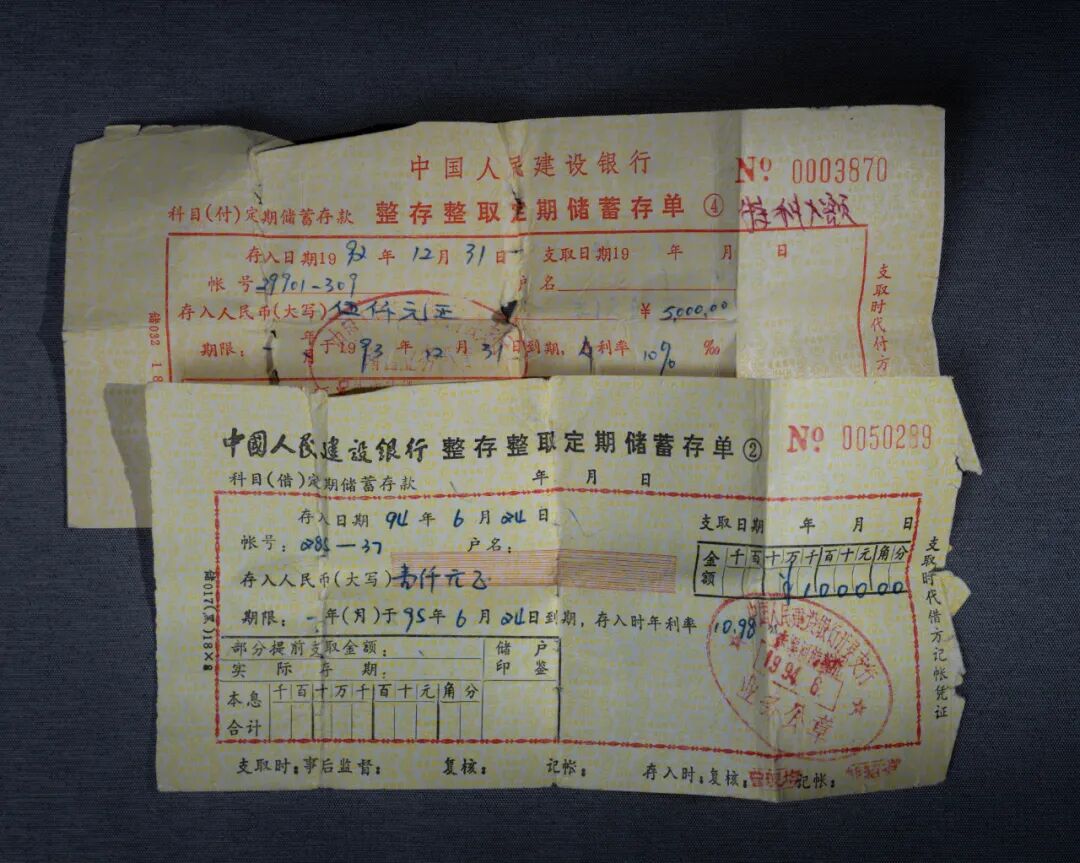 中国人民建设银行
No 0003870
科目(付)定期储蓄存款 整存整取定期储蓄存单 ④
存入日期1992年12月31日 支取日期19 年 月 日
帐号29901-309 户名
存入人民币(大写)伍仟元正 ¥5,000.00
期限:一年于1993年12月31日到期, 利率10% ‰
支取时代付方
储032
中國人民建设银行 整存整取定期储蓄存单② No 0050289
科目(借)定期储蓄存款 年 月 日
存入日期 94年6月24日 支取日期 年 月 日
帐号:285-37 户名:
金额 千百十万千百十元角分
存入人民币(大写)壹仟元正 ¥100000
期限:一年(月)于95年6月24日到期,存入时年利率10.98
部分提前支取金额: 储户
实际存期: 印鉴
本息 千百十万千百十元角分
合计
1994.6.
业务公章
支取时:事后监督: 复核: 记帐: 存入时:复核: 记帐:
支取时代借方记帐凭证
储017(黑)18×8